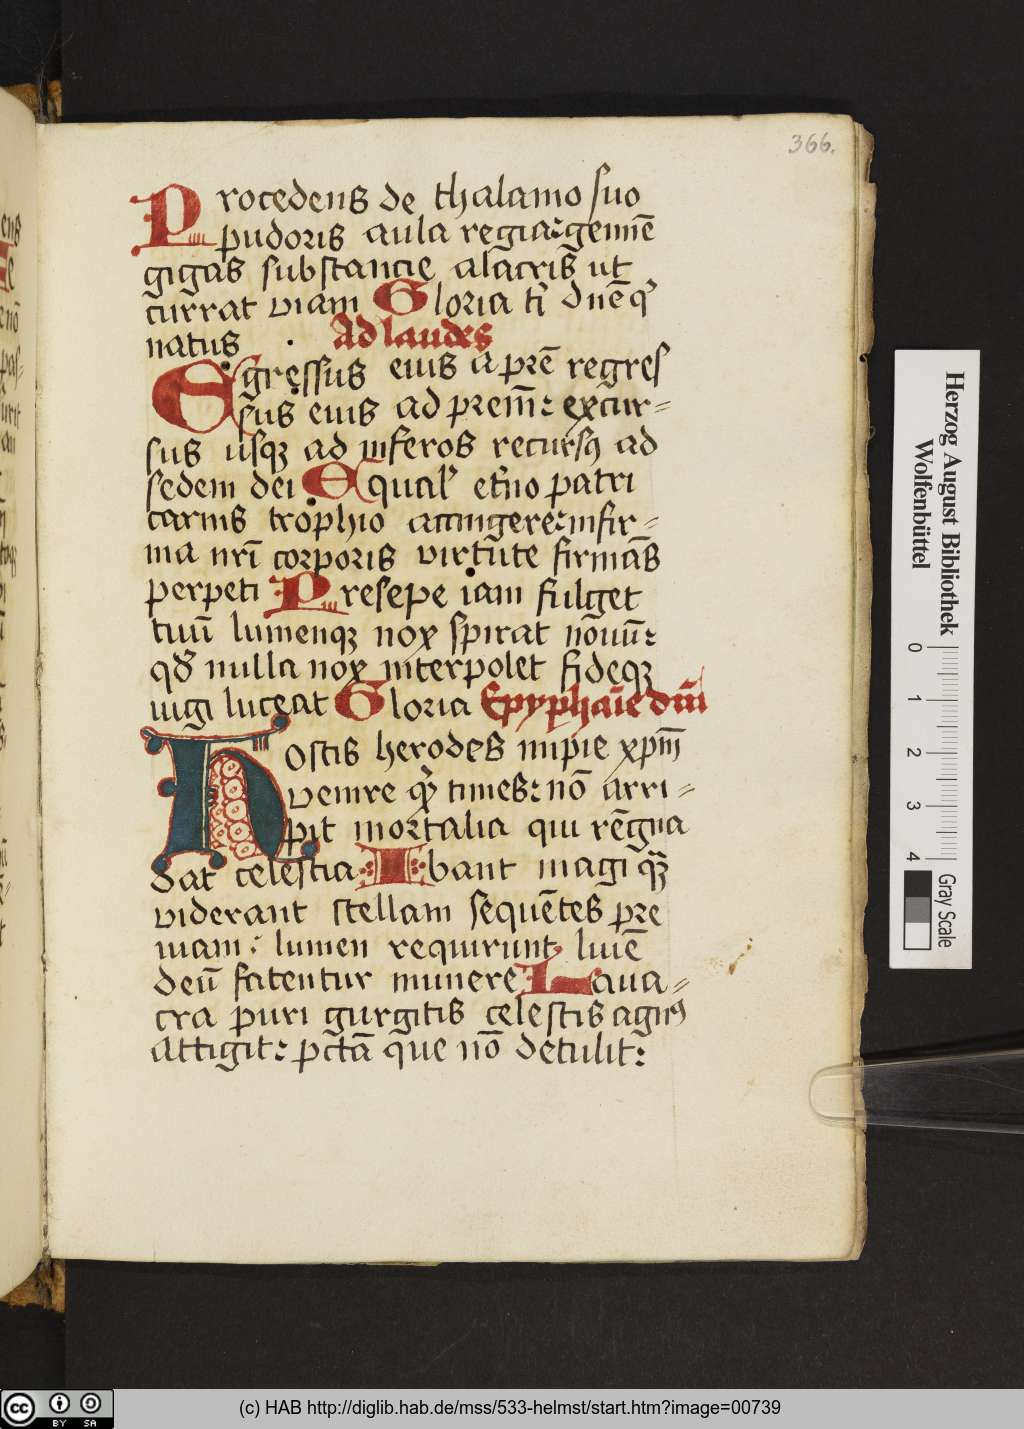 366.
Procedens de thalamo suo
pudoris aula regia: gemīe
gigas substancie alacris ut
currat viam Gloria ti dnē q'
natus . Ad laudes
Egressus eius a prē regres
sus eius ad prem̄: excur=
sus usqz ad inferos recursq ad
sedem dei Equal' etn̄o patri
carnis trophio accingere: infir=
ma nr̄i corporis virtute firmās
perpeti Presepe iam fulget
tuū lumenqz nox spirat nouū:
qd' nulla nox interpolet fideqz
iugi luceat Gloria Epyphaīe dm̄
Hostis herodes impie xpm̄
venire q' times: nō arri=
pit mortalia qui regna
dat celestia Ibant magi quā
viderant stellam sequētes pre
uiam: lumen requirunt luīe
deū fatentur munere Laua=
cra puri gurgitis celestis agn9
attigit: pctā que nō detulit:
Herzog August Bibliothek
Wolfenbüttel
0 1 2 3 4
Gray Scale
ens
cc BY SA
(c) HAB http://diglib.hab.de/mss/533-helmst/start.htm?image=00739